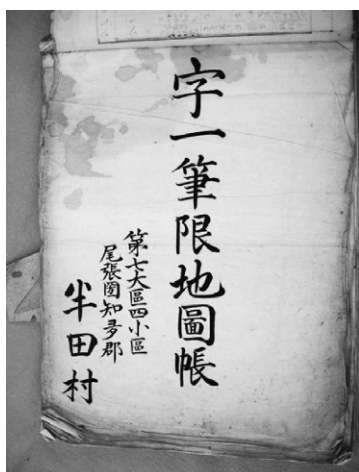 字一筆限地圖帳
第七大區四小區
尾張國知多郡
半田村